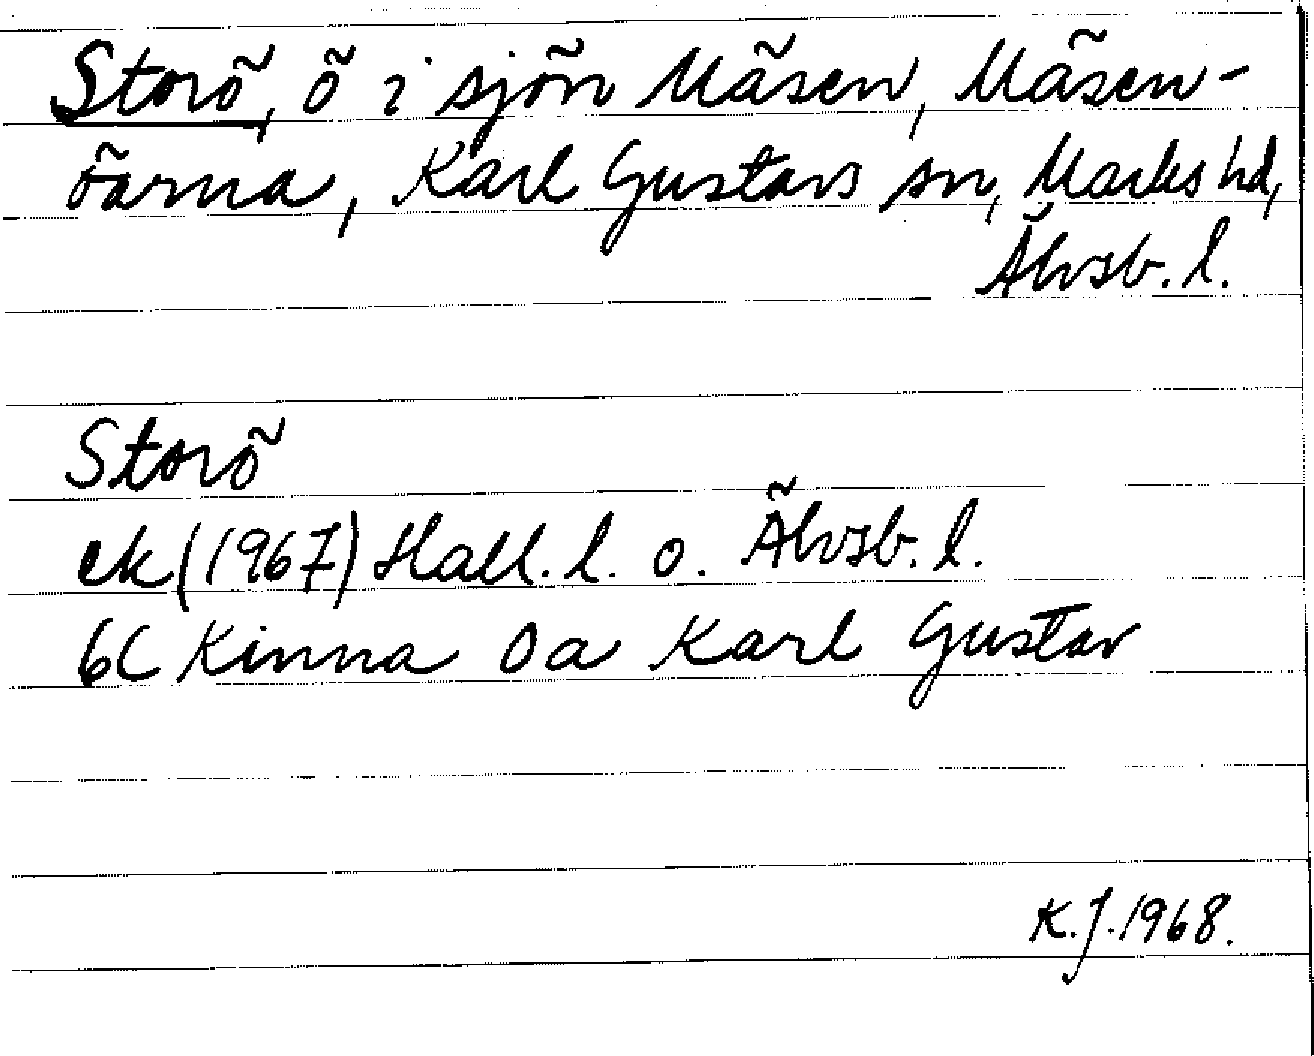 Storö, ö i sjön Mäsen, Mäsen-
öarna, Karl Gustavs sn, Marks hd,
Älvsb. l.
Storö
ek (1967) Hall. l. o. Älvsb. l.
6C Kinna 0a Karl Gustav
K.J. 1968.